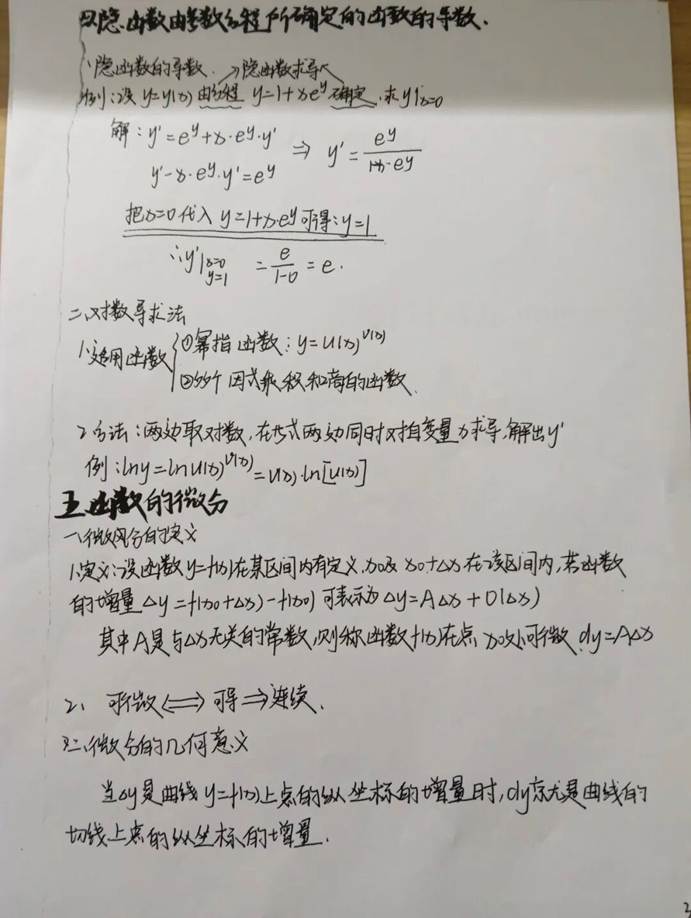 四.隐函数由参数方程所确定的函数的导数.
1.隐函数的导数. →隐函数求导
例:设y=y(x)由方程 y=1+xe^y 确定.求y'|x=0
解:y'=e^y+x·e^y·y' ⇒ y'=e^y/(1-x·e^y)
y'-x·e^y·y'=e^y
把x=0代入 y=1+x·e^y可得:y=1
∴y'|x=0 y=1 =e/(1-0)=e.
二.对数导求法
1.适用函数 ①幂指函数:y=u(x)^v(x)
②多个因式乘积和商的函数.
2.方法:两边取对数,在等式两边同时对自变量x求导,解出y'
例:lny=lnu(x)^v(x)=v(x)·ln[u(x)]
五.函数的微分
一.微分的定义
1.定义:设函数y=f(x)在某区间内有定义.x0及x0+Δx在该区间内,若函数
的增量Δy=f(x0+Δx)-f(x0)可表示为Δy=AΔx+O(Δx)
其中A是与Δx无关的常数,则称函数f(x)在点x0处可微.dy=AΔx
2. 可微⇔可导⇒连续.
二.微分的几何意义
当Δy是曲线y=f(x)上点的纵坐标的增量时,dy就是曲线的
切线上点的纵坐标的增量.
2